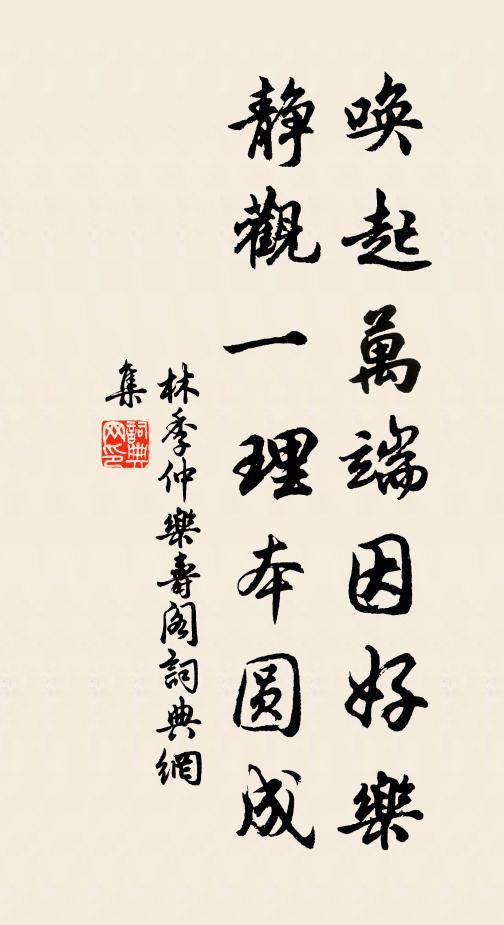 喚起萬端因好樂
靜觀一理本圓成
林季仲樂壽閣詞典網
集
詞典
网印